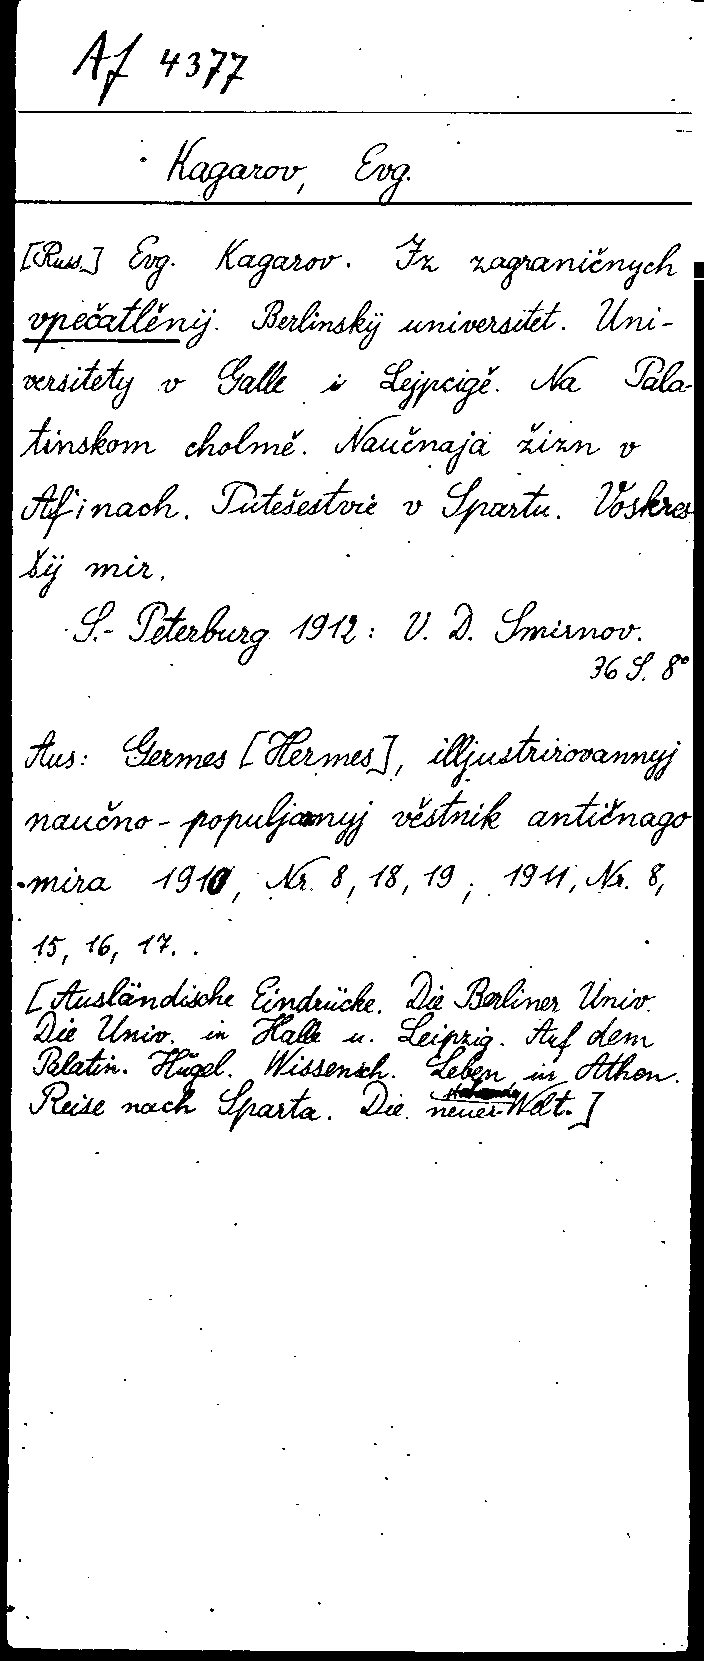 Af 4377
Kagarov, Evg.
[Russ.] Evg. Kagarov. Iz zagraničnych
vpečatlěnij. Berlinskij universitet. Uni-
versitety v Galle i Lejpcigě. Na Pala-
tinskom cholmě. Naučnaja žizn v
Afinach. Putešestvie v Spartu. Voskres
šij mir.
S.-Peterburg 1912: V. D. Smirnov.
36 S. 8°
Aus: Germes [Hermes], illjustrirovannyj
naučno-populjarnyj věstnik antičnago
mira 1910, Nr. 8, 18, 19; 1911, Nr. 8,
15, 16, 17.
[Ausländische Eindrücke. Die Berliner Univ.
Die Univ. in Halle u. Leipzig. Auf dem
Palatin. Hügel. Wissensch. Leben in Athen.
Reise nach Sparta. Die neuer Welt.]